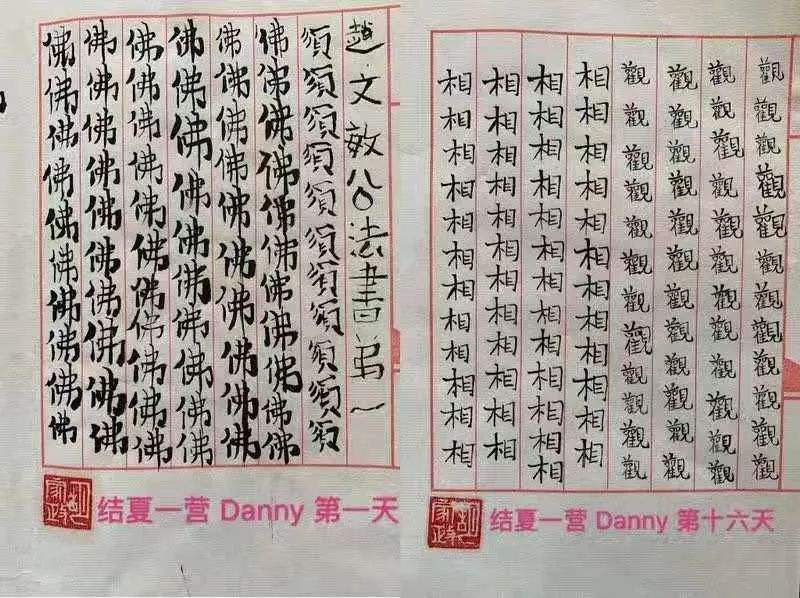 趙文敏公法書弟一
須須須須須須須須須須須須須
佛佛佛佛佛佛佛佛佛佛佛
佛佛佛佛佛佛佛佛佛佛
佛佛佛佛佛佛佛佛佛佛
佛佛佛佛佛佛佛佛佛佛佛
佛佛佛佛佛佛佛佛佛佛
佛佛佛佛佛佛佛佛佛佛
结夏一营 Danny 第一天
觀觀觀觀觀觀觀觀觀觀觀觀
觀觀觀觀觀觀觀觀觀觀觀觀
觀觀觀觀觀觀觀觀觀觀觀觀
觀觀觀觀觀觀觀觀觀觀觀觀
相相相相相相相相相相相相
相相相相相相相相相相相相相
相相相相相相相相相相相相
相相相相相相相相相相相相
结夏一营 Danny 第十六天